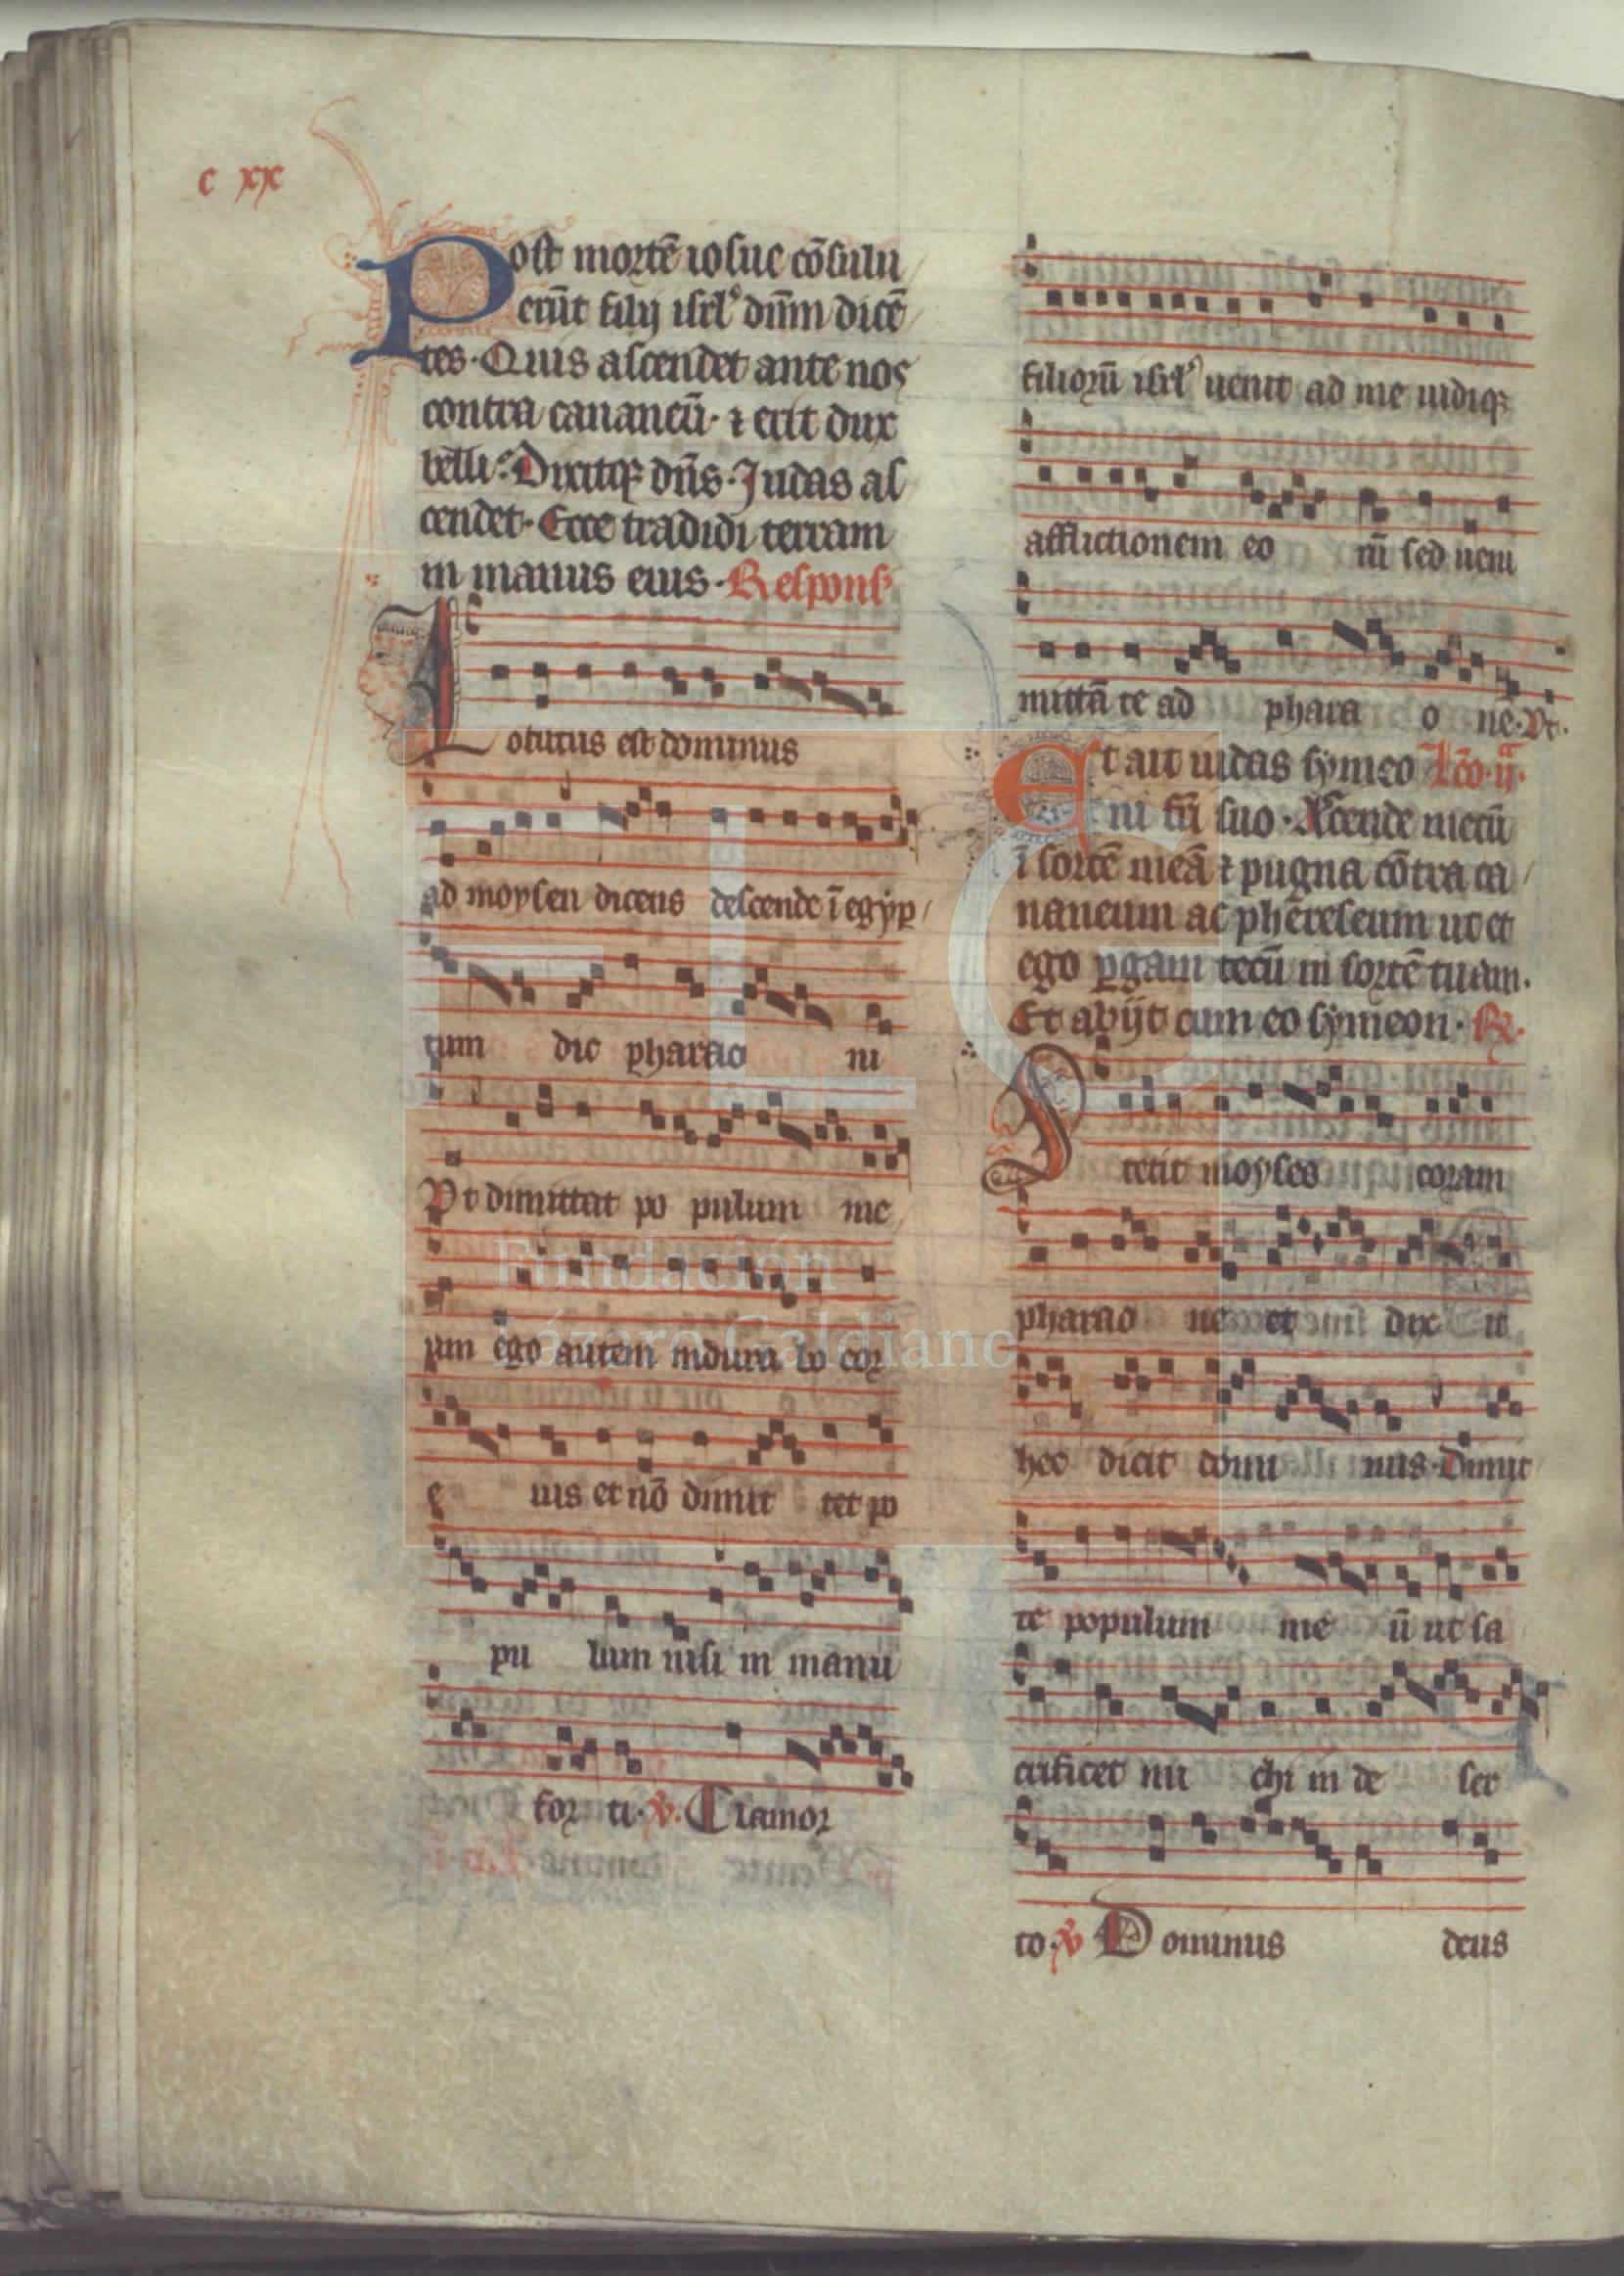 c xx
Post mortē iosue cōsulu
erūt filij isrł dn̄m dicē
tes. Quis ascendet ante nos
contra cananeū. ⁊ erit dux
belli. Dixitqꝫ dn̄s. Judas as
cendet. Ecce tradidi terram
in manus eius. Respons̄
Locutus est dominus
ad moysen dicens descende ī egyp
tum dic pharao ni
Vt dimittat po pulum me
um ego autem indura bo cor
e ius et nō dimit tet po
pu lum nisi in manu
for ti. ℣. Clamor
filiorū isrł venit ad me vidiqꝫ
afflictionem eo ꝝ sed veni
mittā te ad phara o ne. Vt.
Et ait iudas symeo Lc̄o. ij.ᵃ
ni frī suo. Ascende mecū
ī sortē meā ⁊ pugna cōtra ca
naneum ac phereseum ut et
ego ꝑgam tecū in sortē tuam.
Et abijt cum eo symeon. ℟.
Stetit moyses coram
pharao ne et dix it
hec dicit domi nus. Dimit
te populum me ū ut sa
crificet mi chi in de ser
to. ℣ Dominus deus
FLG
Fundación
Lázaro Galdiano